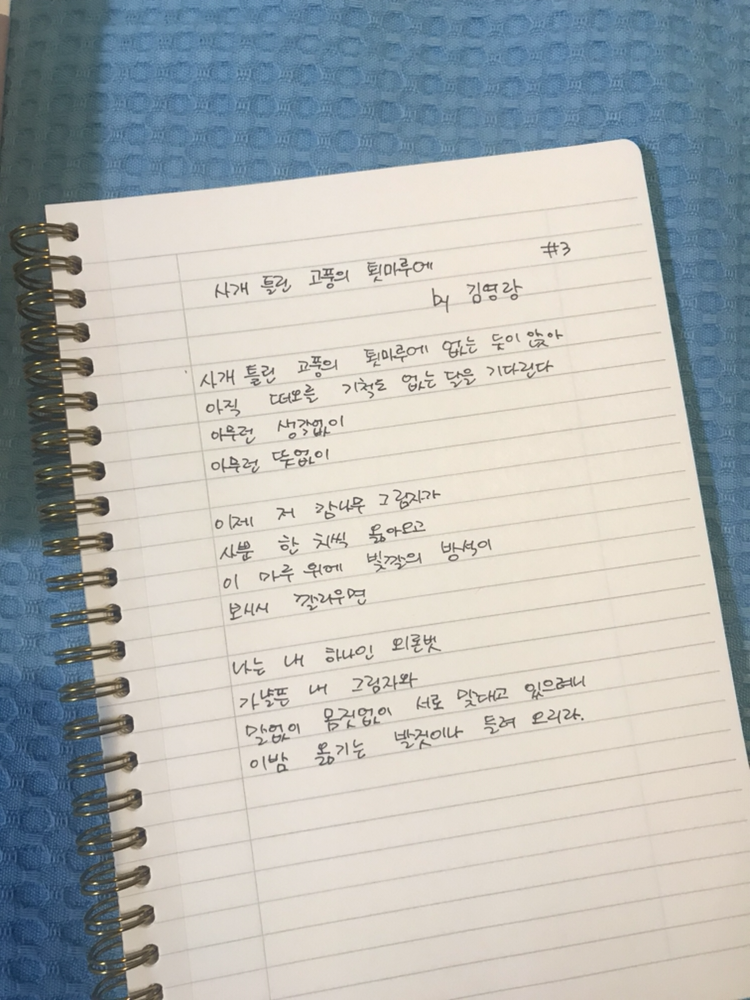 #3
사개 틀린 고풍의 툇마루에
by 김영랑
사개 틀린 고풍의 툇마루에 없는 듯이 앉아
아직 떠오를 기척도 없는 달을 기다린다
아무런 생각없이
아무런 뜻없이
이제 저 감나무 그림자가
사뿐 한 치씩 옮아오고
이 마루 위에 빛깔의 방석이
보시시 깔리우면
나는 내 하나인 외론벗
가냘픈 내 그림자와
말없이 몸짓없이 서로 맞대고 있으려니
이밤 옮기는 발짓이나 들려 오리라.